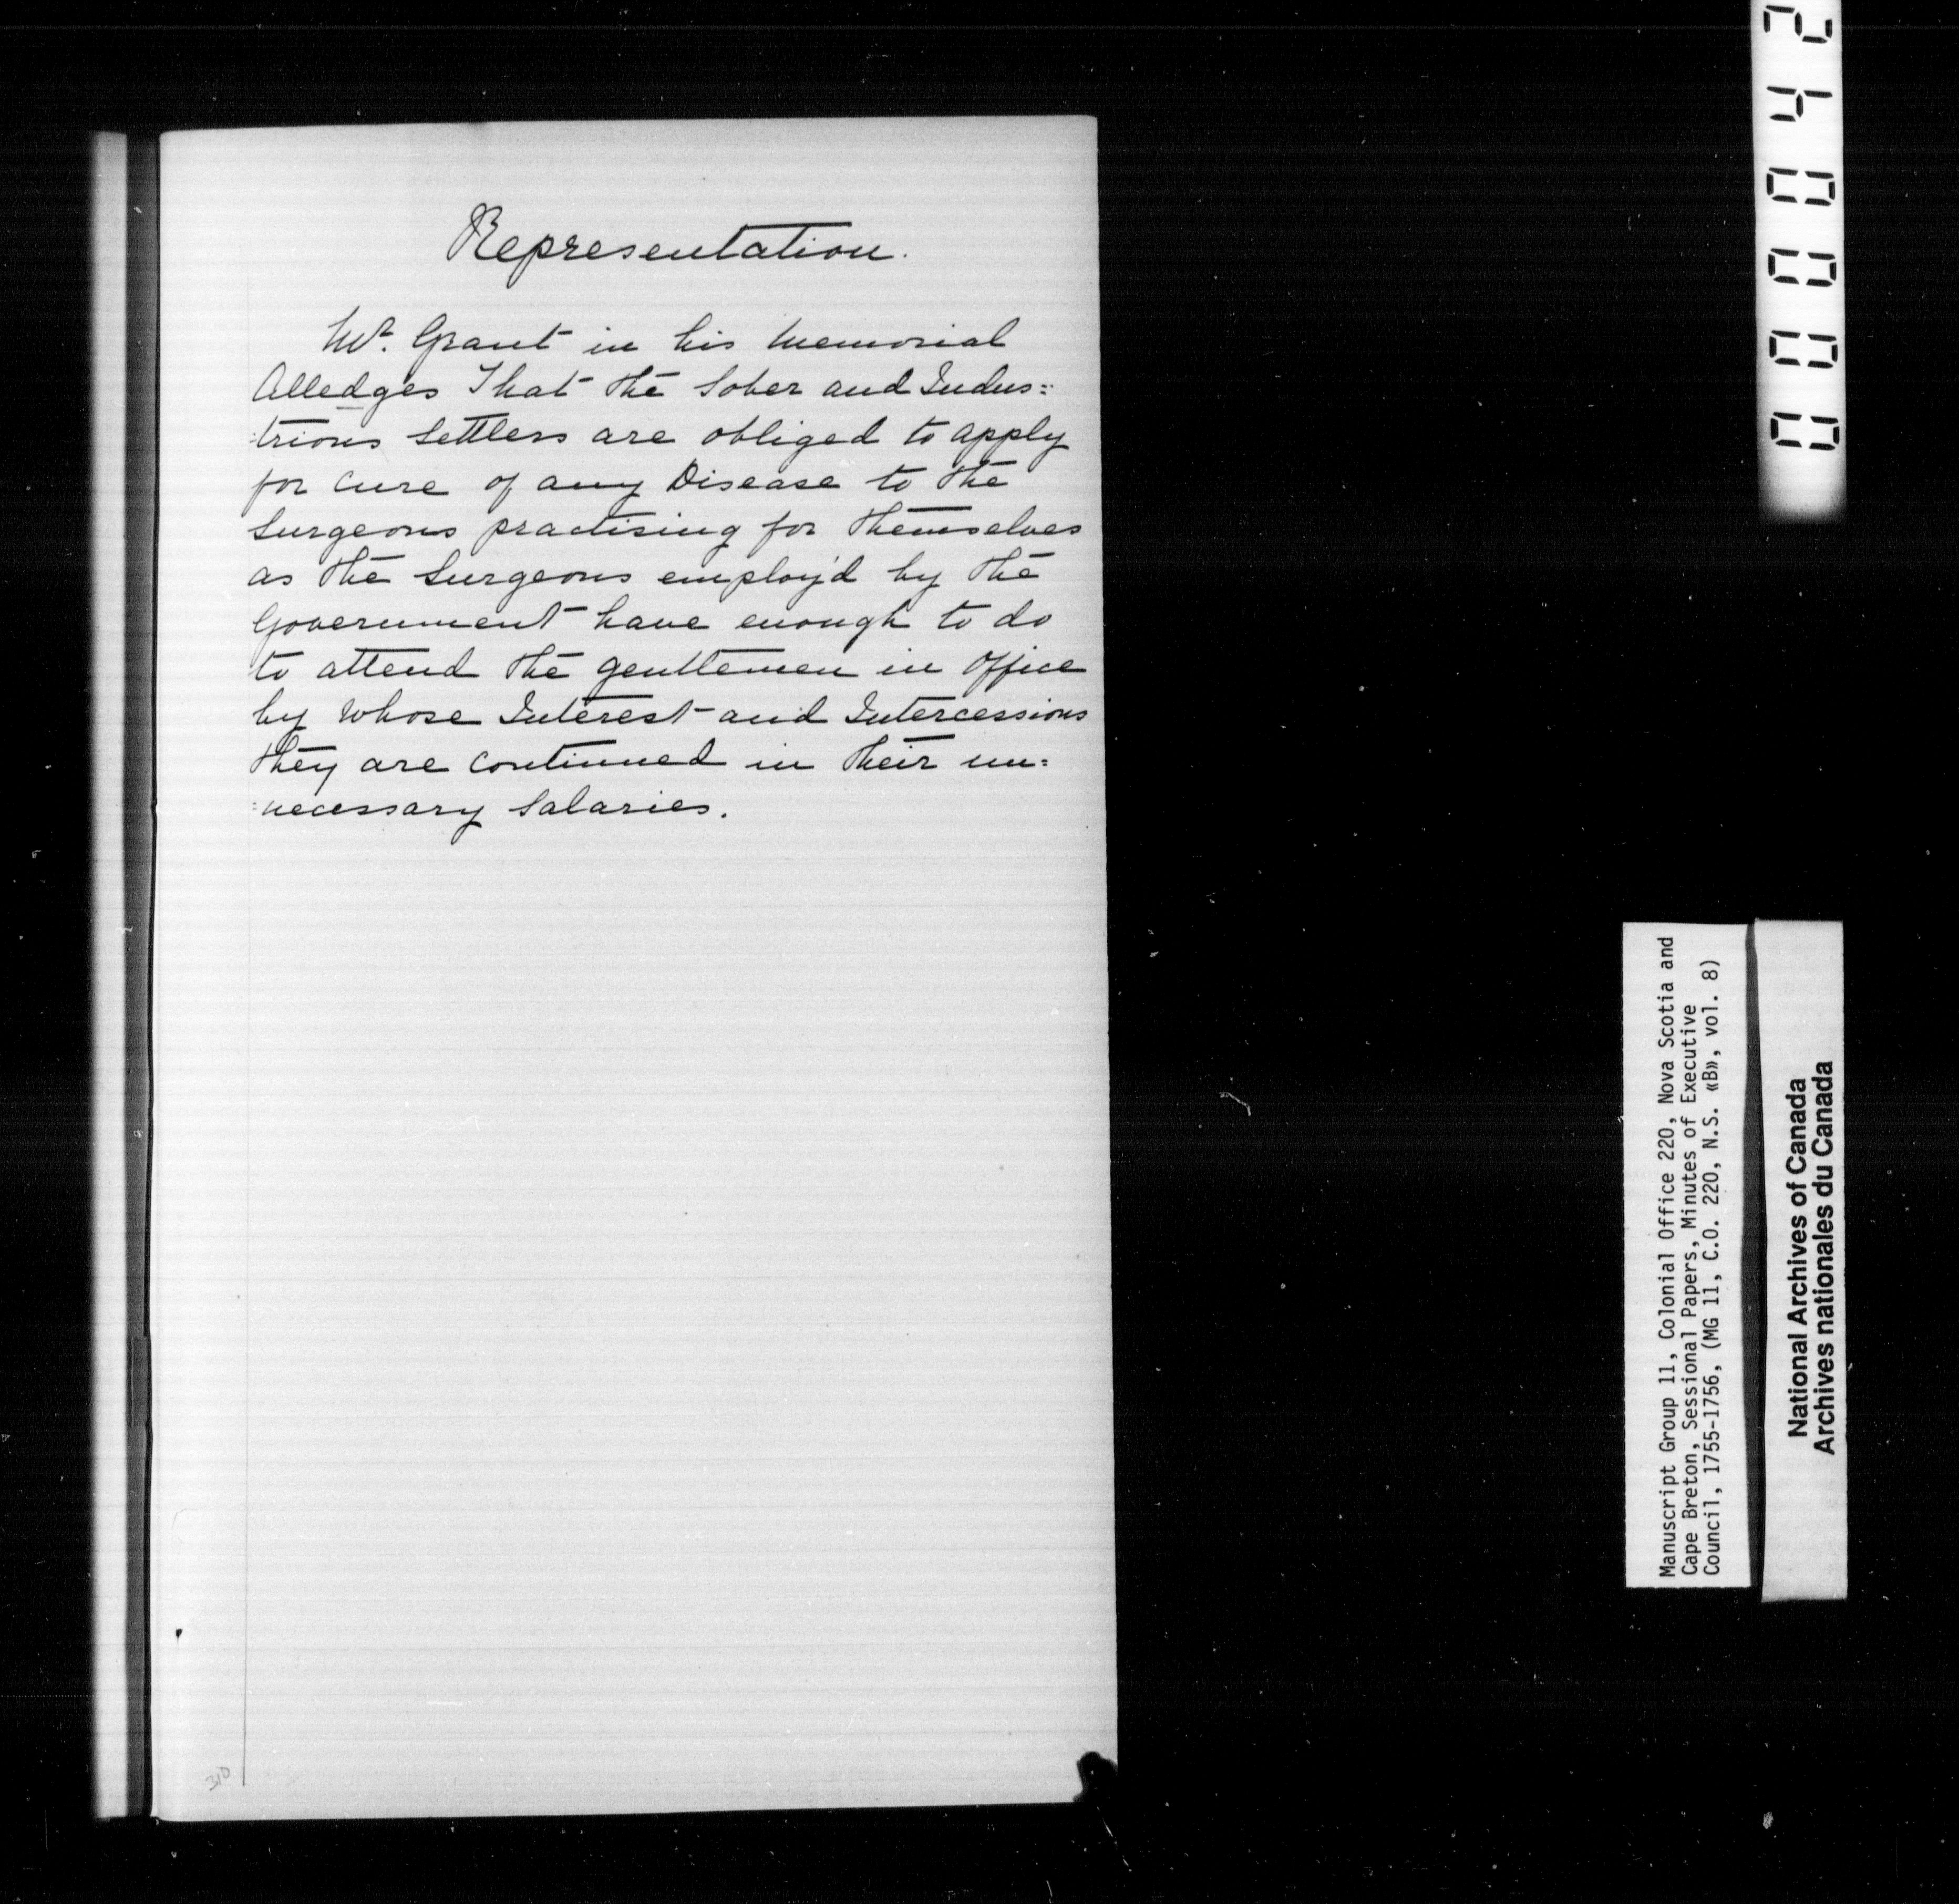 Representation.
Mr. Grant in his Memorial
Alledges That the Sober and Indus=
=trious Settlers are obliged to apply
for cure of any Disease to the
Surgeons practising for themselves
as the Surgeons employ'd by the
Government have enough to do
to attend the gentlemen in Office
by whose Interest and Intercessions
they are continued in their un=
=necessary Salaries.
310
000042
Manuscript Group 11, Colonial Office 220, Nova Scotia and
Cape Breton, Sessional Papers, Minutes of Executive
Council, 1755-1756, (MG 11, C.O. 220, N.S. «B», vol. 8)
National Archives of Canada
Archives nationales du Canada